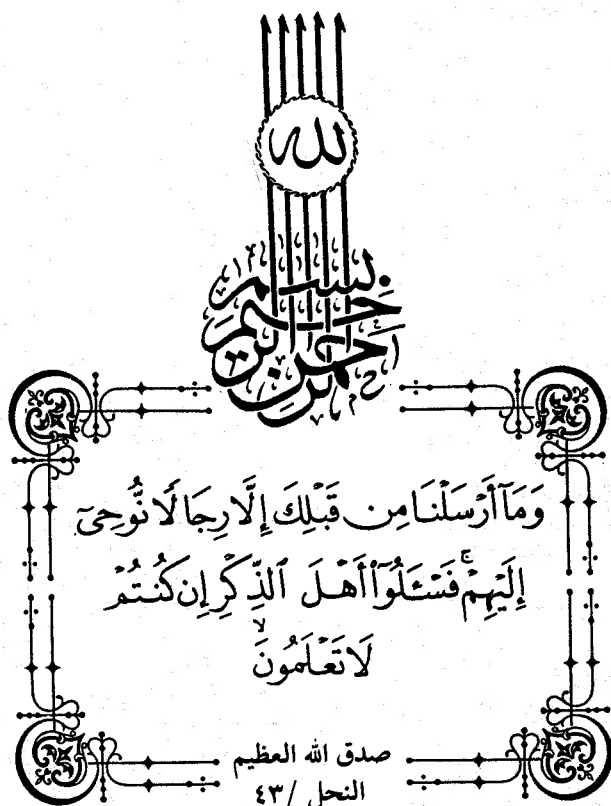 بسم الله الرحمن الرحيم
وَمَآ أَرْسَلْنَا مِن قَبْلِكَ إِلَّا رِجَالًا نُّوحِىٓ
إِلَيْهِمْ ۚ فَسْـَٔلُوٓا۟ أَهْلَ ٱلذِّكْرِ إِن كُنتُمْ
لَا تَعْلَمُونَ ۙ
صدق الله العظيم
النحل /٤٣